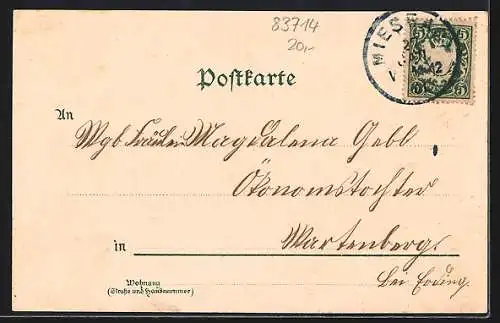 83714
20,-
MIESB
5 5
Postkarte
An
Wgb Fräulein Magdalena Gebl
Ökonomstochter
in Wartenberg
bei Erding.
Wohnung
(Straße und Hausnummer)